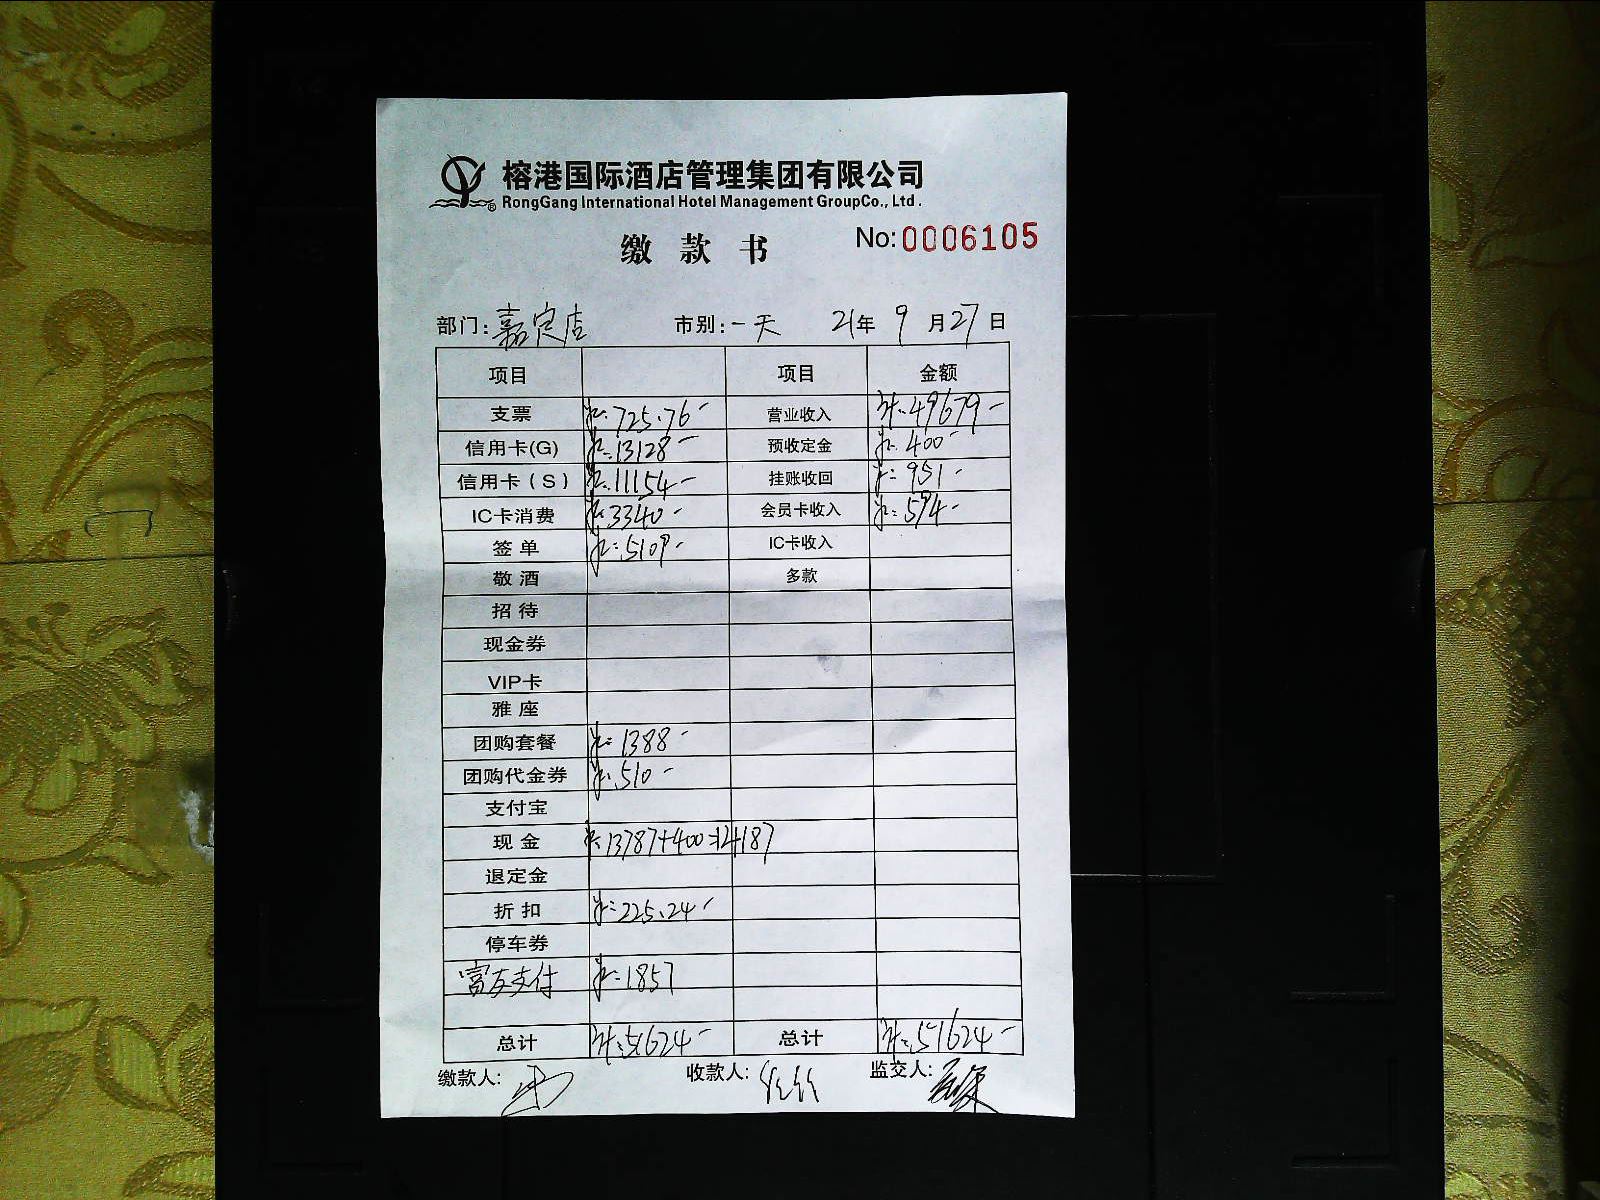 榕港国际酒店管理集团有限公司
RongGang International Hotel Management GroupCo., Ltd.
缴 款 书 No:0006105
部门:嘉定店 市别:一天 21年 9 月27日
项目 项目 金额
支票 725.76- 营业收入 计:49679-
信用卡(G) 13128- 预收定金 400-
信用卡(S) 11154- 挂账收回 951-
IC卡消费 3340- 会员卡收入 594-
签 单 5109- IC卡收入
敬 酒 多款
招 待
现金券
VIP卡
雅 座
团购套餐 1388-
团购代金券 510-
支付宝
现 金 13787+400=14187
退定金
折 扣 225.24-
停车券
富友支付 1857
总计 计:51624- 总计 计:51624-
缴款人: 收款人: 监交人: